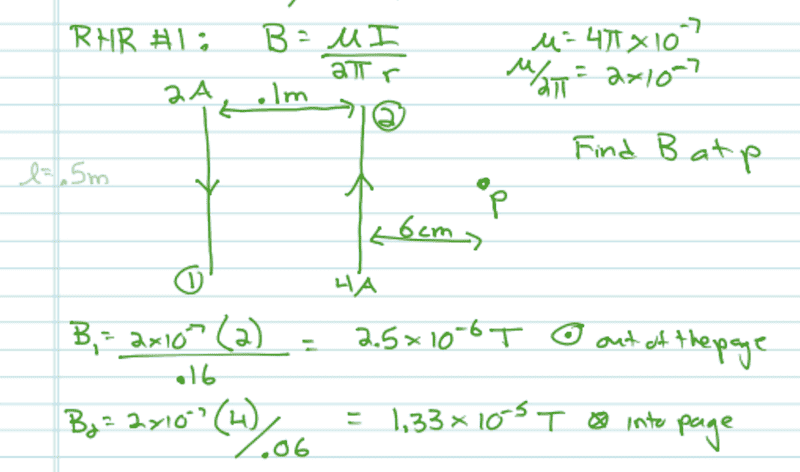 RHR #1: B = μI / 2π r μ = 4π×10⁻⁷
μ/2π = 2×10⁻⁷
2A .1m ②
Find B at p
l=.5m
p
6cm
① 4A
B₁ = 2×10⁻⁷ (2) / .16 = 2.5×10⁻⁶ T ⊙ out of the page
B₂ = 2×10⁻⁷ (4) / .06 = 1.33×10⁻⁵ T ⊗ into page